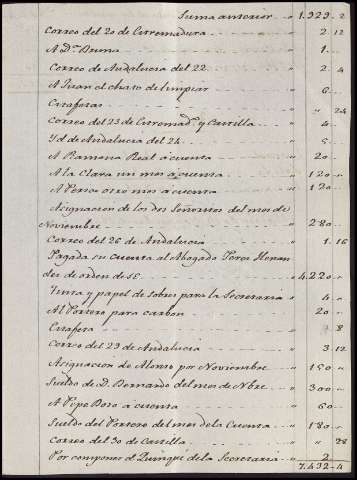 Suma anterior - " 1.929 - 2
Correo del 20 de Extremadura " 2 - 12
A Dª Bruna " 1 -
Correo de Andalucia del 22 " 2 - 4
A Juan el chato de limpiar " 6 -
Estafetas " " 24
Correo del 23 de Extremadª y Castilla " 4 -
Yd de Andalucia del 24 " 5 -
A Ramona Real a cuenta " 20 -
A la Clara un mes a cuenta " 120 -
A otro mes a cuenta " 120 -
Asignacion de los dos Señoritos del mes de
Noviembre " 280 -
Correo del 26 de Andalucia " 1 - 16
Pagada su cuenta al Abogado Perez Hernan
dez de orden de SE " 4.220 -
Tinta y papel de sobres para la Secretaria " 4 -
Al Portero para carbon " 20 -
Estafeta " " 8
Correo del 29 de Andalucia " 3 - 12
Asignacion de Alonso por Noviembre " 150 -
Sueldo de D. Bernardo del mes de Nbre " 300 -
A Pepe Boso a cuenta " 60 -
Sueldo del Portero del mes de la Cuenta " 180 -
Correo del 30 de Castilla " " 28
Por componer el Quinqué de la Secretaria " 2
7.432 - 4